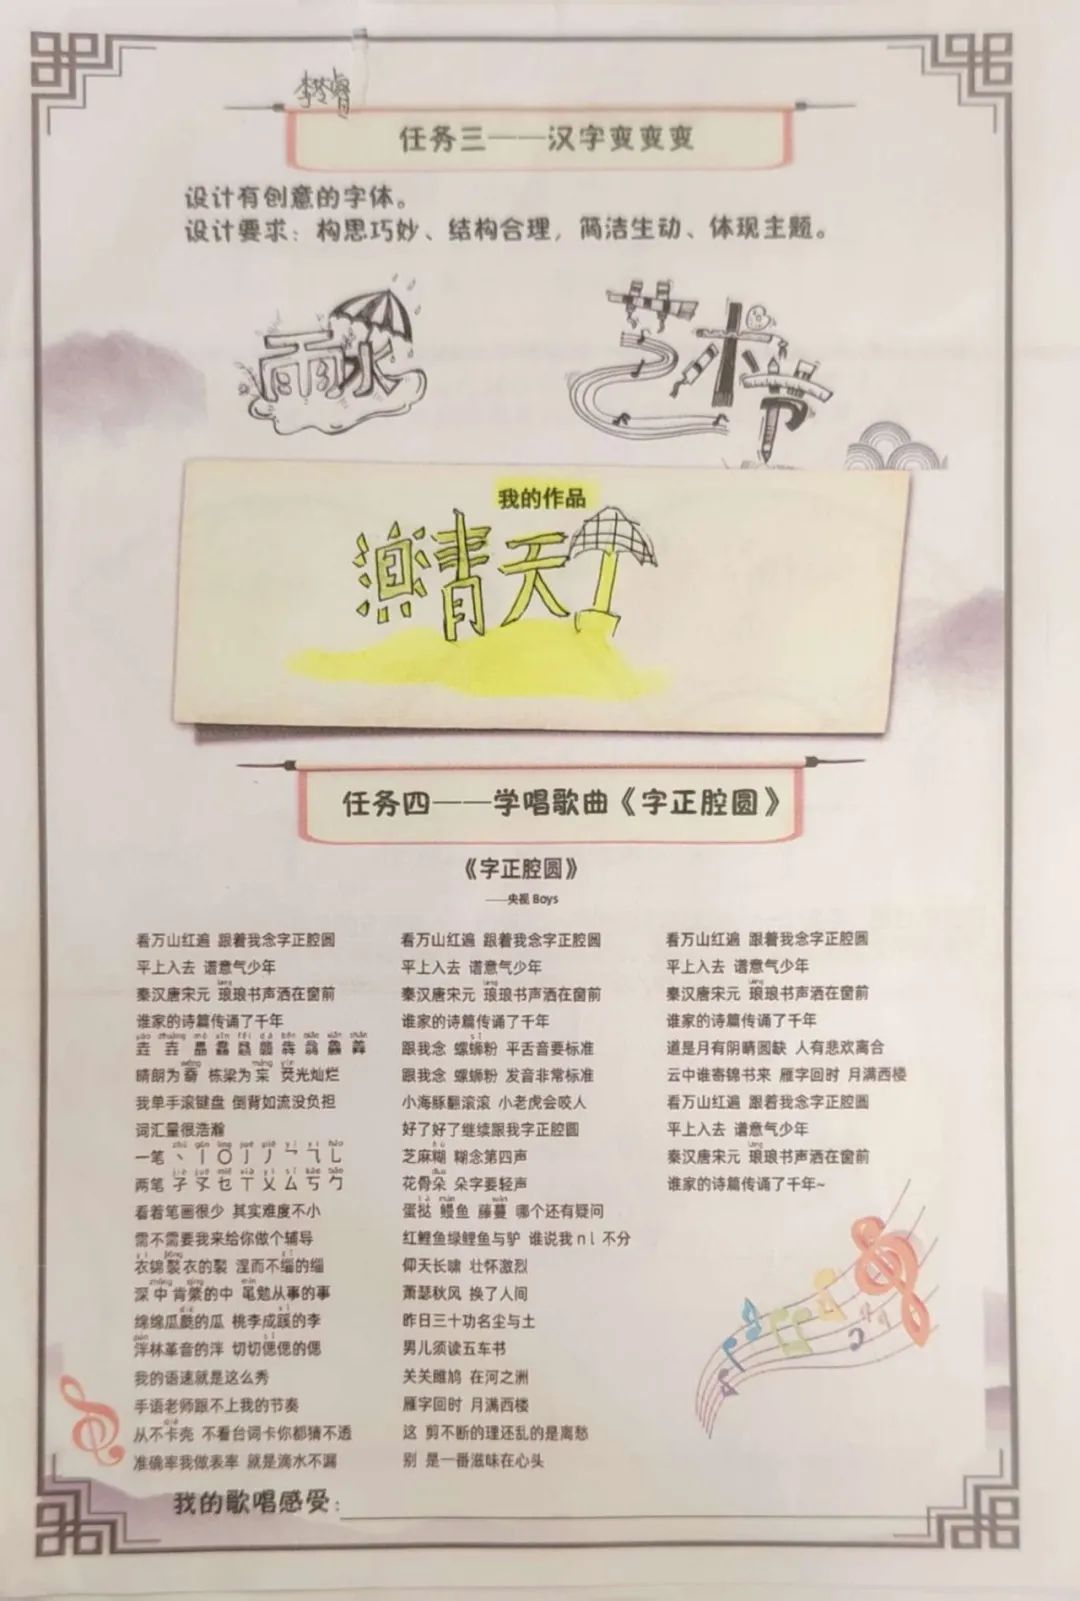 任务三——汉字变变变
设计有创意的字体。
设计要求：构思巧妙、结构合理，简洁生动、体现主题。
雨水
艺术节
我的作品
晴天
任务四——学唱歌曲《字正腔圆》
《字正腔圆》
——央视 Boys
看万山红遍 跟着我念字正腔圆
平上入去 谱意气少年
秦汉唐宋元 琅琅书声洒在窗前
谁家的诗篇传诵了千年
晴朗为 栋梁为 荧光灿烂
我单手滚键盘 倒背如流没负担
词汇量很浩瀚
一笔
两笔 孑 孓 乜 丅 乂 厶 丂 勹
看着笔画很少 其实难度不小
需不需要我来给你做个辅导
衣锦褧衣的褧 涅而不缁的缁
深中肯綮的中 黾勉从事的事
绵绵瓜瓞的瓜 桃李成蹊的李
泮林革音的泮 切切偲偲的偲
我的语速就是这么秀
手语老师跟不上我的节奏
从不卡壳 不看台词卡你都猜不透
准确率我做表率 就是滴水不漏
看万山红遍 跟着我念字正腔圆
平上入去 谱意气少年
秦汉唐宋元 琅琅书声洒在窗前
谁家的诗篇传诵了千年
跟我念 螺蛳粉 平舌音要标准
跟我念 螺蛳粉 发音非常标准
小海豚翻滚滚 小老虎会咬人
好了好了继续跟我字正腔圆
芝麻糊 糊念第四声
花骨朵 朵字要轻声
蛋挞 鳗鱼 藤蔓 哪个还有疑问
红鲤鱼绿鲤鱼与驴 谁说我 n l 不分
仰天长啸 壮怀激烈
萧瑟秋风 换了人间
昨日三十功名尘与土
男儿须读五车书
关关雎鸠 在河之洲
雁字回时 月满西楼
这 剪不断的理还乱的是离愁
别 是一番滋味在心头
看万山红遍 跟着我念字正腔圆
平上入去 谱意气少年
秦汉唐宋元 琅琅书声洒在窗前
谁家的诗篇传诵了千年
道是月有阴晴圆缺 人有悲欢离合
云中谁寄锦书来 雁字回时 月满西楼
看万山红遍 跟着我念字正腔圆
平上入去 谱意气少年
秦汉唐宋元 琅琅书声洒在窗前
谁家的诗篇传诵了千年~
我的歌唱感受：